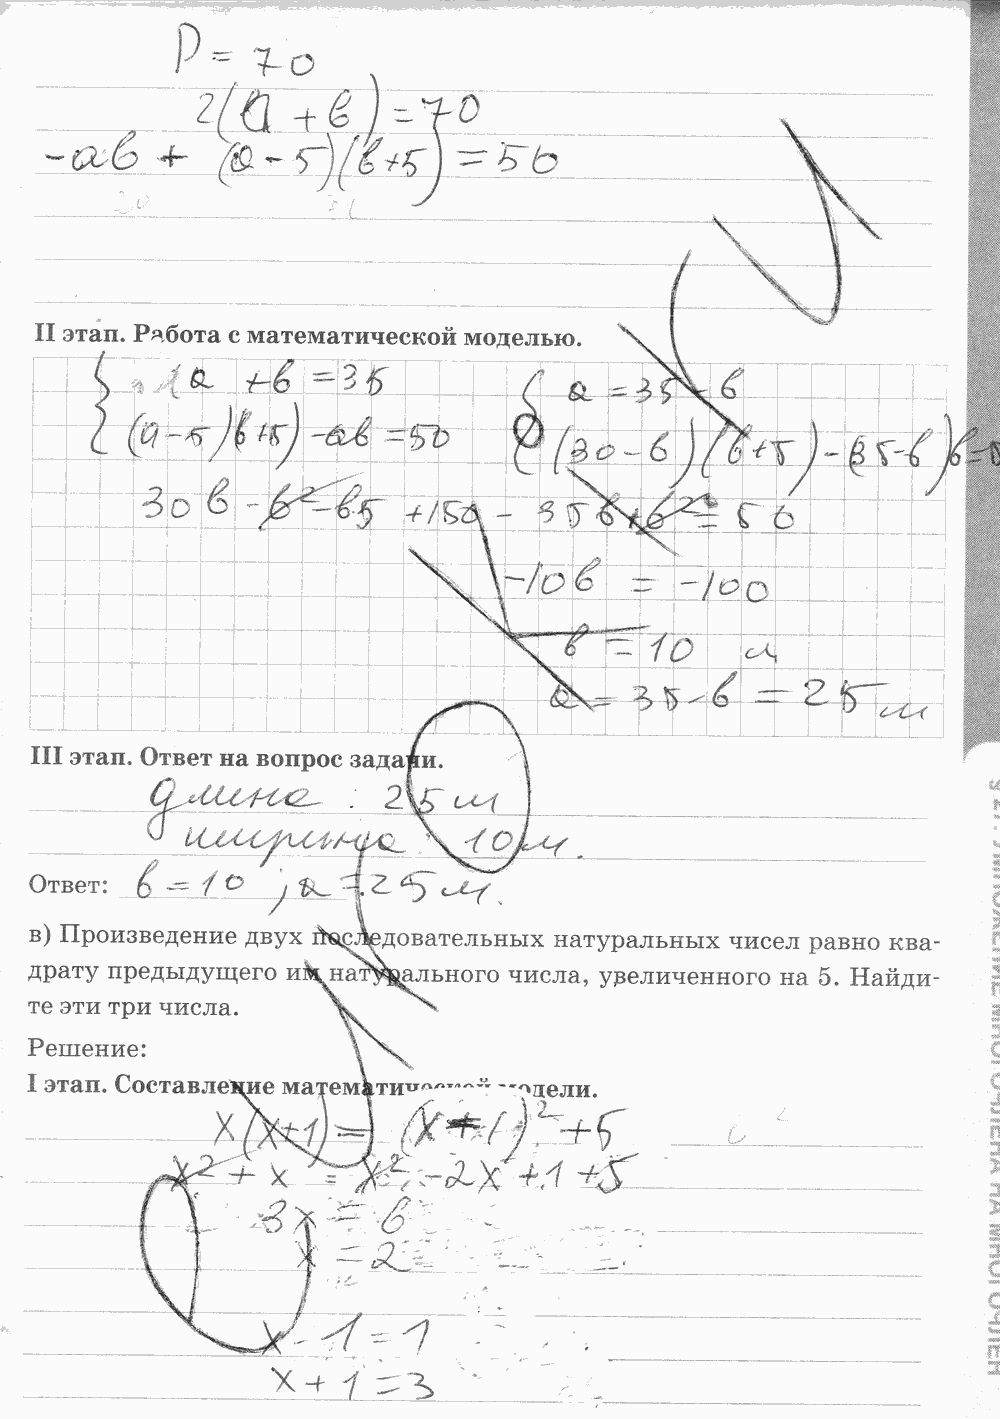 P = 70
2(a + b) = 70
-ab + (a - 5)(b+5) = 50
II этап. Работа с математической моделью.
a + b = 35
(a - 5)(b+5) - ab = 50
a = 35 - b
(30 - b)(b+5) - (35-b)b=5
30b - b² - b5 + 150 - 35b + b² = 50
-10b = -100
b = 10 м
a = 35 - b = 25 м
III этап. Ответ на вопрос задачи.
длина : 25 м
ширина : 10 м.
Ответ: b = 10 ; a = 25 м.
в) Произведение двух последовательных натуральных чисел равно ква-
драту предыдущего им натурального числа, увеличенного на 5. Найди-
те эти три числа.
Решение:
I этап. Составление математической модели.
x(x+1) = (x - 1)² + 5
x² + x = x² - 2x + 1 + 5
3x = 6
x = 2
x - 1 = 1
x + 1 = 3